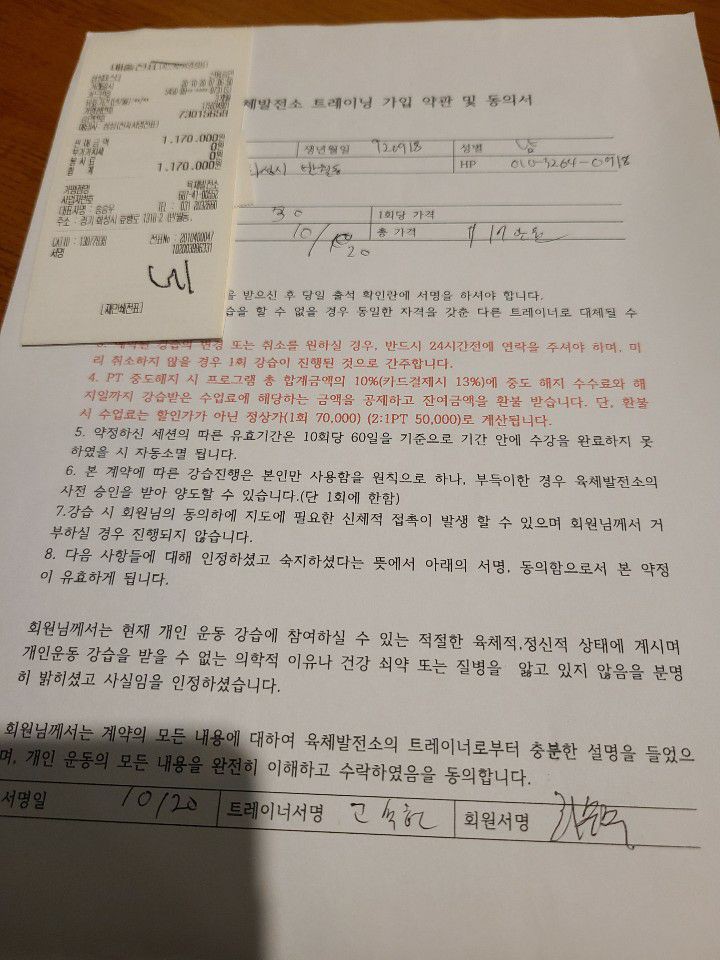 1.170.000원
0원
0원
1.170.000원
73015658
육체발전소
607-41-00552
TEL : 031 2032660
[재인쇄전표]
체발전소 트레이닝 가입 약관 및 동의서
생년월일 920918 성별 남
화성시 반월동 HP 010-3264-0918
30 1회당 가격
10/20 총 가격 117만원
을 받으신 후 당일 출석 확인란에 서명을 하셔야 합니다.
습을 할 수 없을 경우 동일한 자격을 갖춘 다른 트레이너로 대체될 수
3. 계약된 강습의 변경 또는 취소를 원하실 경우, 반드시 24시간전에 연락을 주셔야 하며, 미
리 취소하지 않을 경우 1회 강습이 진행된 것으로 간주합니다.
4. PT 중도해지 시 프로그램 총 합계금액의 10%(카드결제시 13%)에 중도 해지 수수료와 해
지일까지 강습받은 수업료에 해당하는 금액을 공제하고 잔여금액을 환불 받습니다. 단, 환불
시 수업료는 할인가가 아닌 정상가(1회 70,000) (2:1PT 50,000)로 계산됩니다.
5. 약정하신 세션의 따른 유효기간은 10회당 60일을 기준으로 기간 안에 수강을 완료하지 못
하였을 시 자동소멸 됩니다.
6. 본 계약에 따른 강습진행은 본인만 사용함을 원칙으로 하나, 부득이한 경우 육체발전소의
사전 승인을 받아 양도할 수 있습니다.(단 1회에 한함)
7.강습 시 회원님의 동의하에 지도에 필요한 신체적 접촉이 발생 할 수 있으며 회원님께서 거
부하실 경우 진행되지 않습니다.
8. 다음 사항들에 대해 인정하셨고 숙지하셨다는 뜻에서 아래의 서명, 동의함으로서 본 약정
이 유효하게 됩니다.
회원님께서는 현재 개인 운동 강습에 참여하실 수 있는 적절한 육체적,정신적 상태에 계시며
개인운동 강습을 받을 수 없는 의학적 이유나 건강 쇠약 또는 질병을 앓고 있지 않음을 분명
히 밝히셨고 사실임을 인정하셨습니다.
회원님께서는 계약의 모든 내용에 대하여 육체발전소의 트레이너로부터 충분한 설명을 들었으
며, 개인 운동의 모든 내용을 완전히 이해하고 수락하였음을 동의합니다.
서명일 10/20 트레이너서명 회원서명